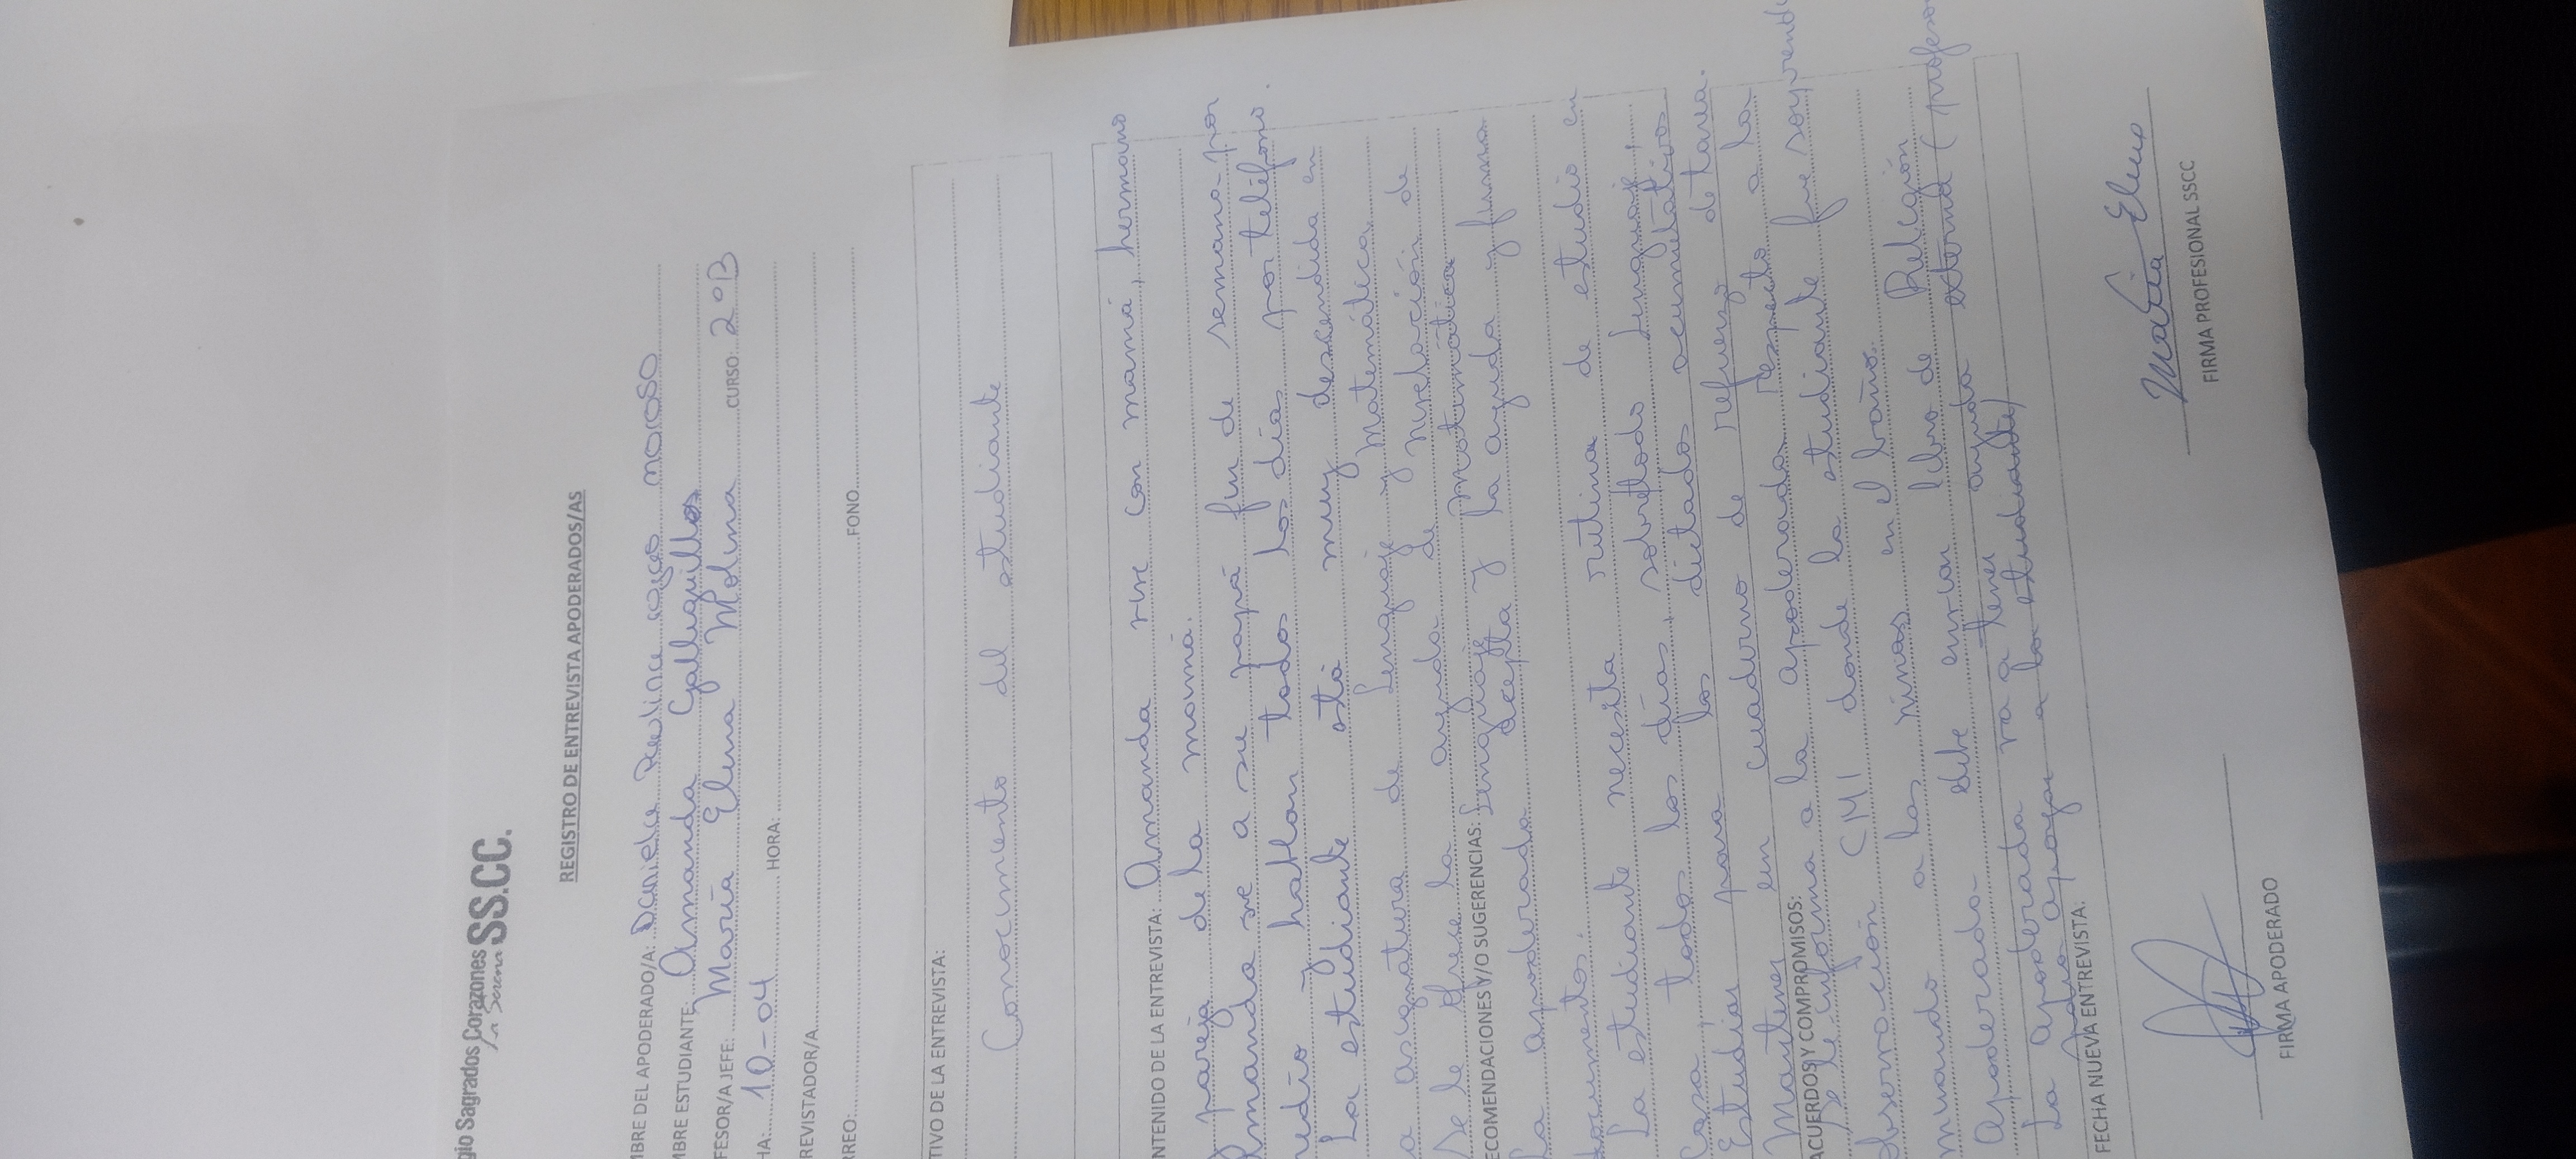 gio Sagrados Corazones SS.CC.
La Serena
REGISTRO DE ENTREVISTA APODERADOS/AS
MBRE DEL APODERADO/A: Daniela Paulina moroso
MBRE ESTUDIANTE: Amanda Galleguillos
FESOR/A JEFE: Maria Elena Molina CURSO 2°B
HA: 10-04 HORA:
REVISTADOR/A
RREO: FONO
TIVO DE LA ENTREVISTA:
Conocimiento del estudiante
NTENIDO DE LA ENTREVISTA: Amanda vive con mamá, hermano
pareja de la mamá.
Amanda ve a su papá fin de semana por
medio y hablan todos los días por teléfono.
La estudiante está muy descendida en
la asignatura de Lenguaje y Matemática
Se le ofrece la ayuda de nivelación de
ECOMENDACIONES Y/O SUGERENCIAS: Lenguaje y Matemática
La apoderada acepta la ayuda y firma
documentos.
La estudiante necesita rutina de estudio en
casa, todos los días, sobretodo Lenguaje,
Estudiar para los dictados acumulativos
Mantener en cuaderno de refuerzo de tarea.
ACUERDOS Y COMPROMISOS:
Se le informa a la apoderada respecto a la
observación CMI donde la estudiante fue sorprendi
mirando a las niñas en el baño.
Apoderado debe enviar libro de Religión
La apoderada va a tener ayuda externa (profesor
para apoyar a la estudiante)
FECHA NUEVA ENTREVISTA:
FIRMA APODERADO
Maria Elena
FIRMA PROFESIONAL SSCC